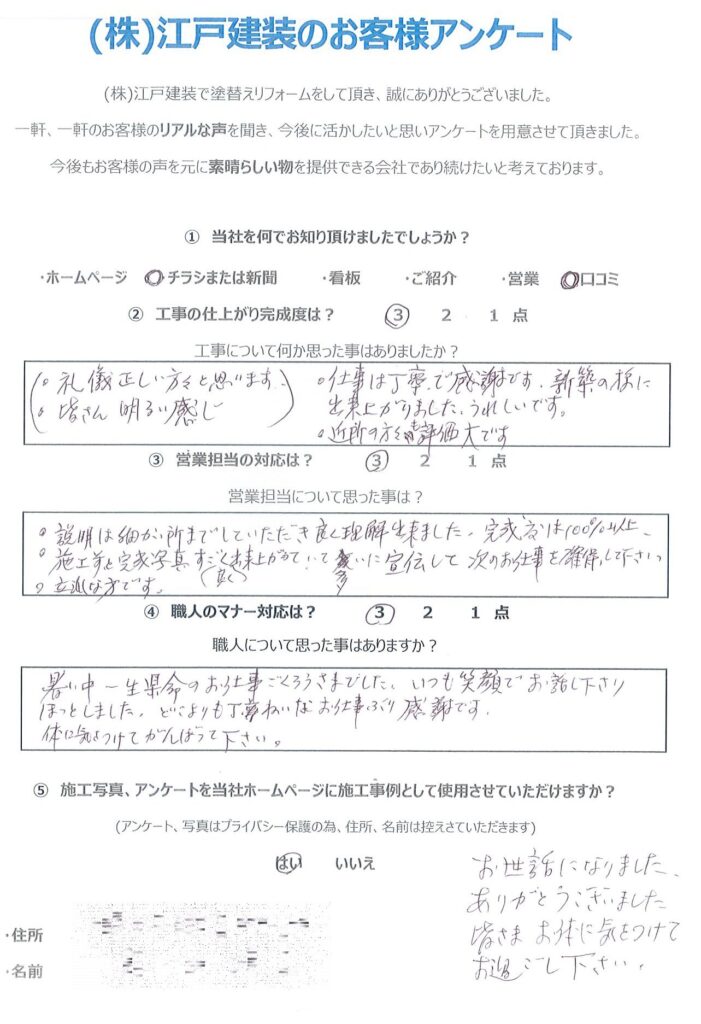 (株)江戸建装のお客様アンケート
(株)江戸建装で塗替えリフォームをして頂き、誠にありがとうございました。
一軒、一軒のお客様のリアルな声を聞き、今後に活かしたいと思いアンケートを用意させて頂きました。
今後もお客様の声を元に素晴らしい物を提供できる会社であり続けたいと考えております。
① 当社を何でお知り頂けましたでしょうか？
・ホームページ ○チラシまたは新聞 ・看板 ・ご紹介 ・営業 ○口コミ
② 工事の仕上がり完成度は？ ③ 2 1 点
工事について何か思った事はありましたか？
○礼儀正しい方々と思います
○皆さん明るい感じ
○仕事は丁寧で感謝です、新築の様に
出来上がりました、うれしいです。
○近所の方々も評価大です
③ 営業担当の対応は？ ③ 2 1 点
営業担当について思った事は？
○説明は細かい所までしていただき良く理解出来ました、完成度は100％以上、
○施工前と完成写真すごく出来上がっていて 多いに宣伝して次のお仕事を確保して下さい
○立派な方です。
④ 職人のマナー対応は？ ③ 2 1 点
職人について思った事はありますか？
暑い中一生県命のお仕事ごくろうさまでした、いつも笑顔でお話し下さり
ほっとしました、どこよりも丁寧ねいなお仕事ぶり感謝です、
体に気をつけてがんばって下さい。
⑤ 施工写真、アンケートを当社ホームページに施工事例として使用させていただけますか？
(アンケート、写真はプライバシー保護の為、住所、名前は控えさていただきます)
はい いいえ
お世話になりました、
ありがとうございました
皆さまお体に気をつけて
お過ごし下さい、
・住所
・名前